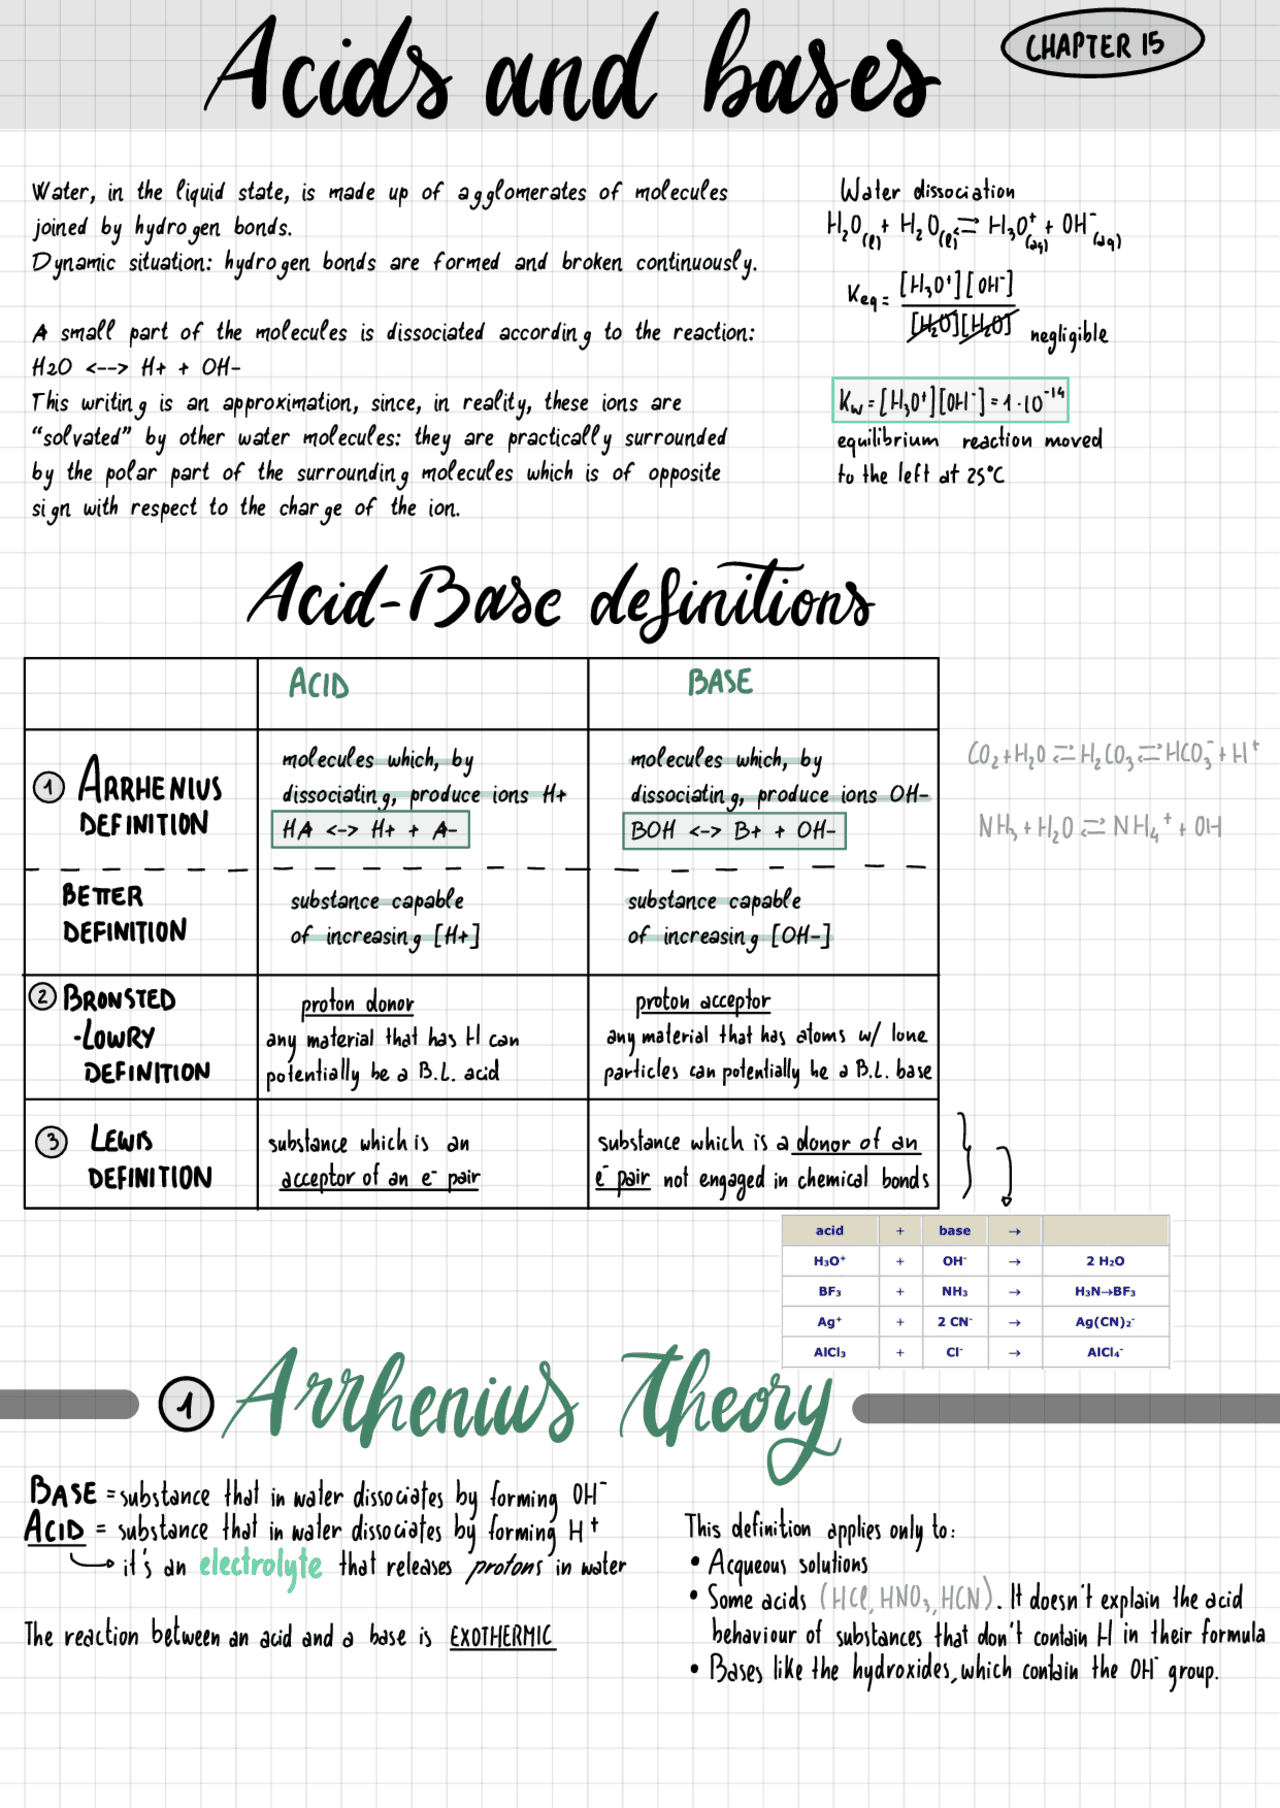 Acids and bases
CHAPTER 15
Water, in the liquid state, is made up of agglomerates of molecules
joined by hydrogen bonds.
Dynamic situation: hydrogen bonds are formed and broken continuously.
A small part of the molecules is dissociated according to the reaction:
H2O <--> H+ + OH-
This writing is an approximation, since, in reality, these ions are
“solvated” by other water molecules: they are practically surrounded
by the polar part of the surrounding molecules which is of opposite
sign with respect to the charge of the ion.
Water dissociation
H₂O(l) + H₂O(l) ⇌ H₃O⁺(aq) + OH⁻(aq)
Keq = [H₃O⁺][OH⁻]
[H₂O][H₂O] negligible
Kw = [H₃O⁺][OH⁻] = 1·10⁻¹⁴
equilibrium reaction moved
to the left at 25°C
Acid-Base definitions
ACID BASE
① ARRHENIUS
DEFINITION
molecules which, by
dissociating, produce ions H+
HA <-> H+ + A-
molecules which, by
dissociating, produce ions OH-
BOH <-> B+ + OH-
CO₂ + H₂O ⇌ H₂CO₃ ⇌ HCO₃⁻ + H⁺
NH₃ + H₂O ⇌ NH₄⁺ + OH
BETTER
DEFINITION
substance capable
of increasing [H+]
substance capable
of increasing [OH-]
② BRONSTED
-LOWRY
DEFINITION
proton donor
any material that has H can
potentially be a B.L. acid
proton acceptor
any material that has atoms w/ lone
particles can potentially be a B.L. base
③ LEWIS
DEFINITION
substance which is an
acceptor of an e⁻ pair
substance which is a donor of an
e⁻ pair not engaged in chemical bonds
acid + base →
H₃O⁺ + OH⁻ → 2 H₂O
BF₃ + NH₃ → H₃N→BF₃
Ag⁺ + 2 CN⁻ → Ag(CN)₂⁻
AlCl₃ + Cl⁻ → AlCl₄⁻
① Arrhenius Theory
BASE = substance that in water dissociates by forming OH⁻
ACID = substance that in water dissociates by forming H⁺
it's an electrolyte that releases protons in water
The reaction between an acid and a base is EXOTHERMIC
This definition applies only to:
• Acqueous solutions
• Some acids (HCl, HNO₃, HCN). It doesn't explain the acid
behaviour of substances that don't contain H in their formula
• Bases like the hydroxides, which contain the OH⁻ group.